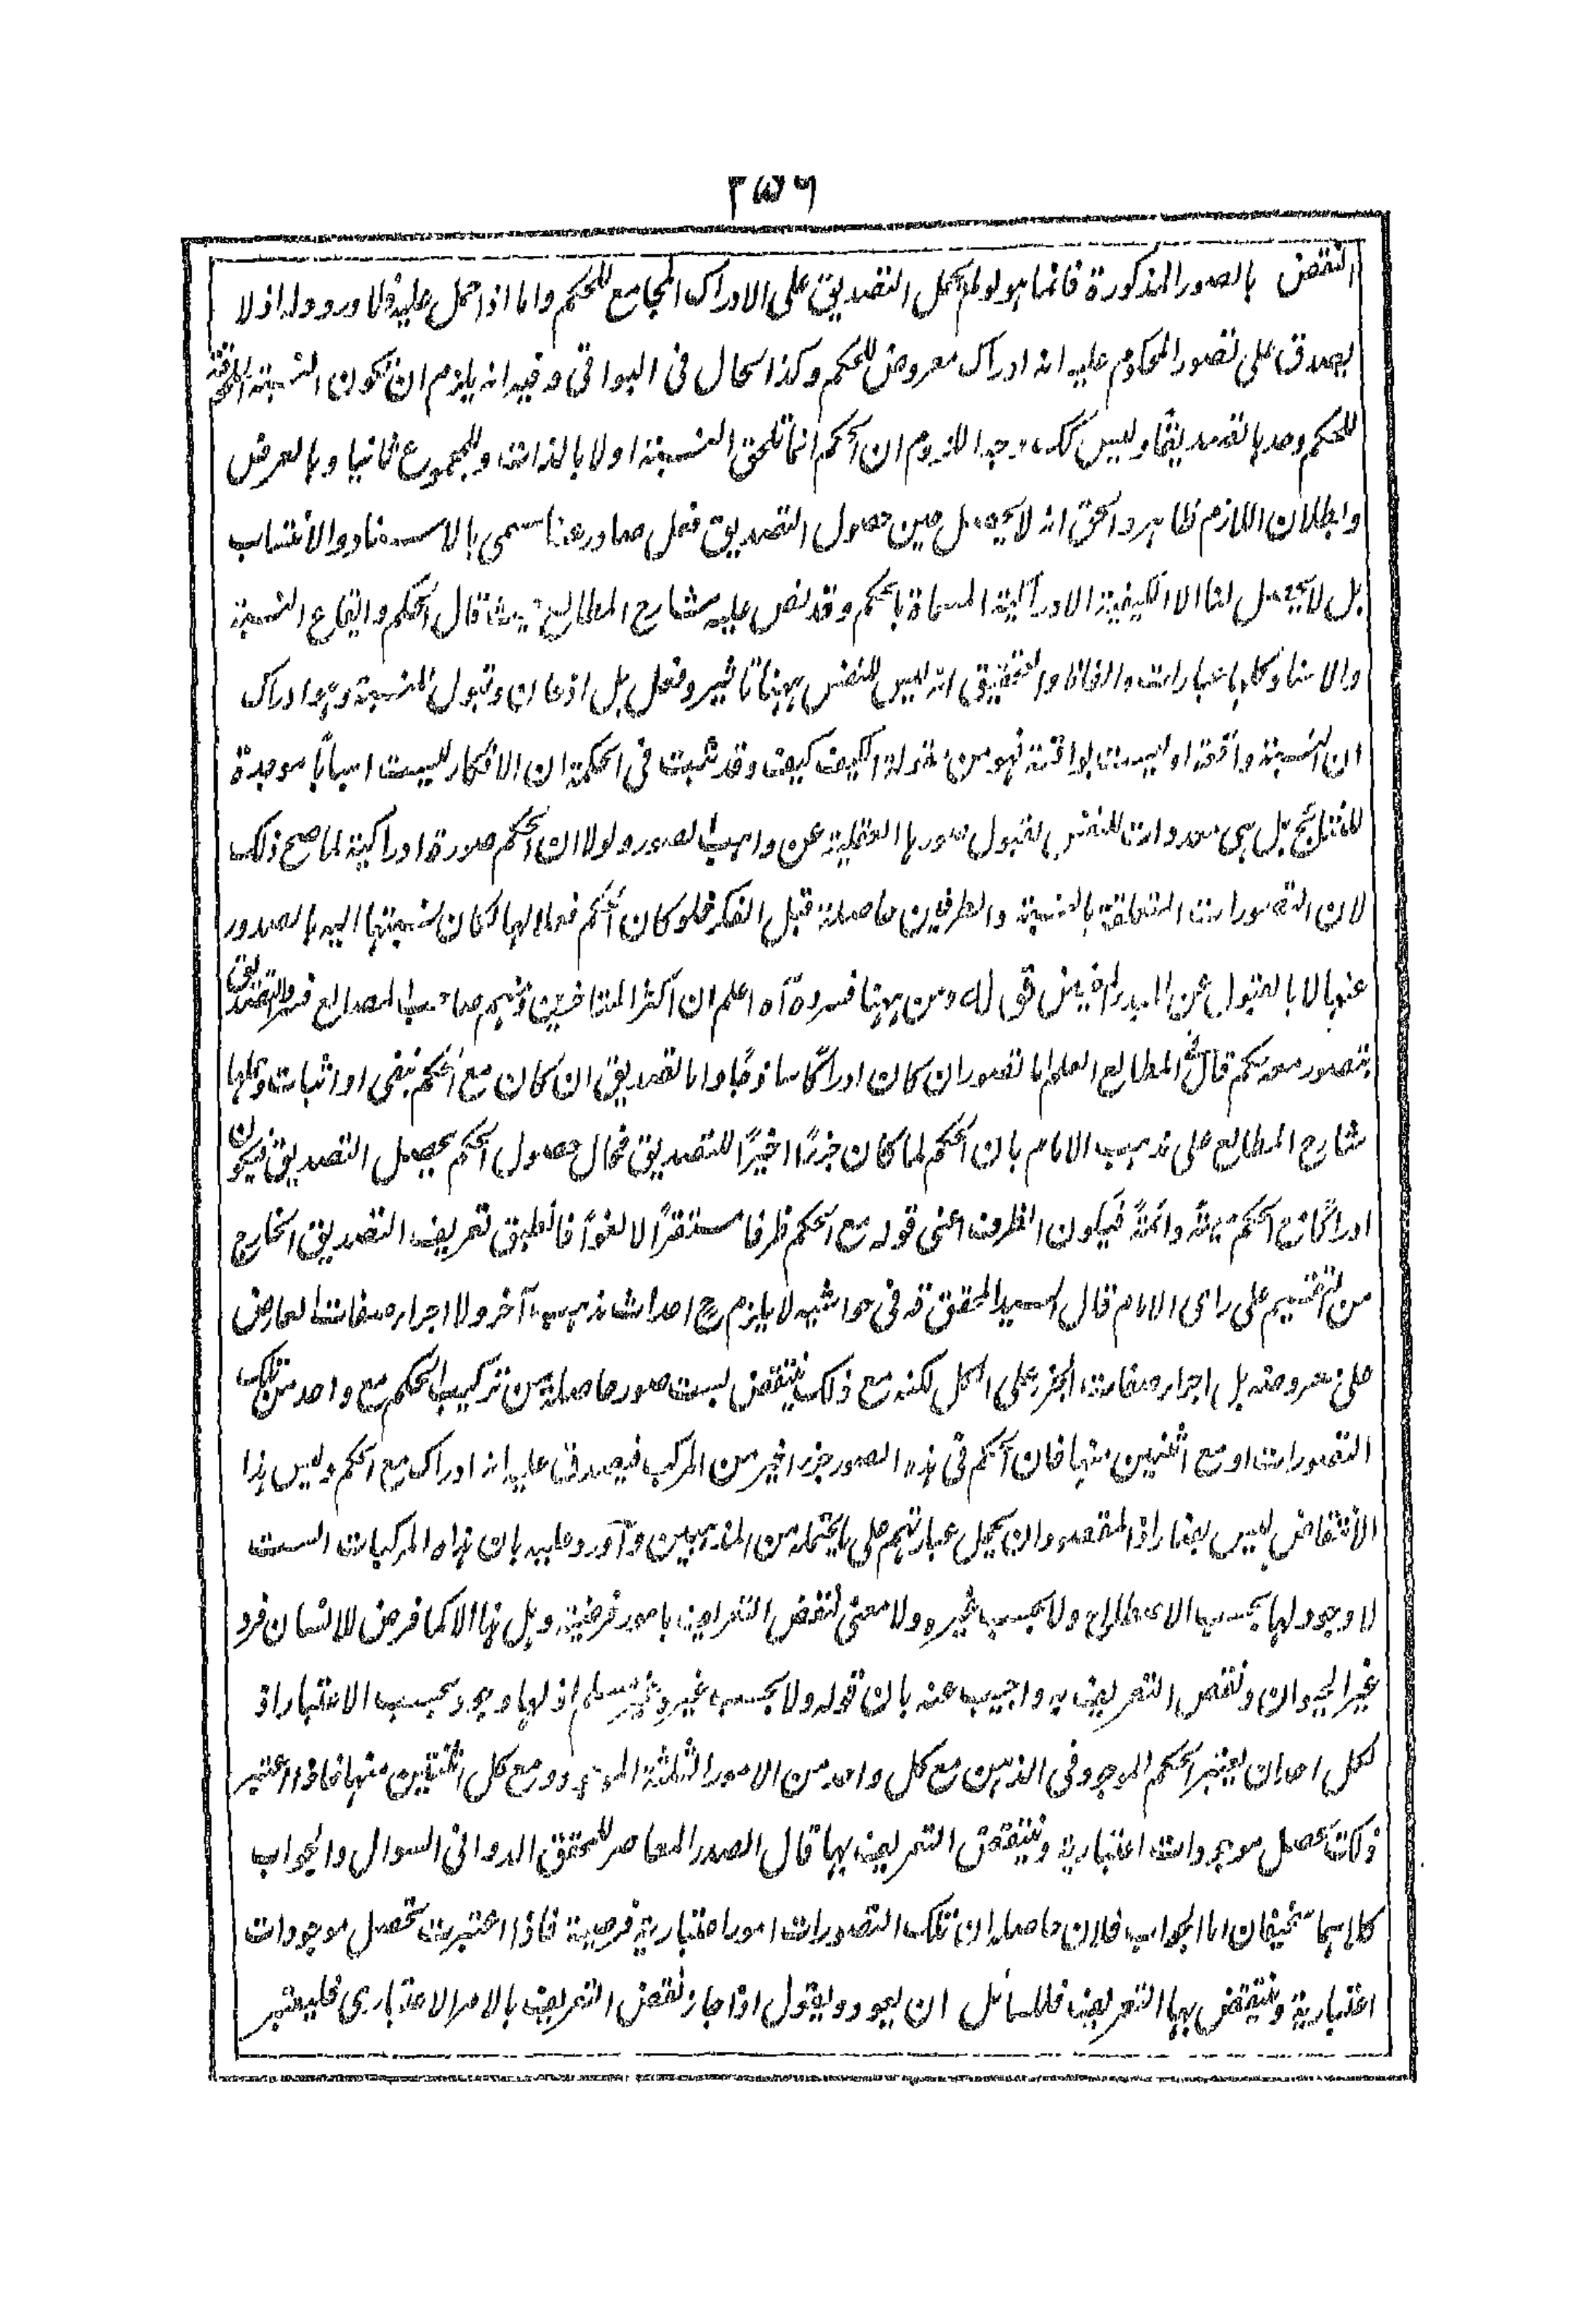 ٢٥٦
النقض بالصور المذكورة فانما هو لو لم يحمل التصديق على الادراك المجامع للحكم واما اذا حمل عليه فلا ورود له اذ لا
يصدق على تصور المحكوم عليه انه ادراك معروض للحكم وكذا الحال فى البواقى وفيه انه يلزم ان تكون النسبة
للحكم وحدها تصديقا وليس كك وجه اللزوم ان الحكم انما تلحق النسبة اولا بالذات وللمجموع ثانيا وبالعرض
وابطلان اللازم ظاهر والحق انه لا يحصل حين حصول التصديق فعل صادر عنا يسمى بالاسناد والانتساب
بل لا يحصل لنا الا الكيفية الادراكية المسماة بالحكم وقد نص عليه شارح المطالع حيث قال الحكم وايقاع النسبة
والاسناد كلها عبارات والفاظ والتحقيق انه ليس للنفس ههنا تاثير وفعل بل اذعان وقبول للنسبة وهو ادراك
ان النسبة واقعة او ليست بواقعة فهو من مقولة الكيف كيف وقد ثبت فى الحكمة ان الافكار ليست اسبابًا موجدة
للنتائج بل هى معدات للنفس لقبول صورها العقلية عن واهب الصور ولولا ان الحكم صورة ادراكية لما صح ذلك
لان التصورات المتعلقة بالنسبة والطرفين حاصلة قبل الفكر فلو كان الحكم فعلا لها لكان نسبتها اليه بالصدور
عنها لا بالقبول عن المبدء الفياض قوله ومن ههنا فسروه آه اعلم ان اكثر المتاخرين ومنهم صاحب المطالع فسر التصديق
بتصور معه حكم قال فى المطالع العلم اما تصور ان كان ادراكًا ساذجًا واما تصديق ان كان مع الحكم بنفى او اثبات وحملها
شارح المطالع على مذهب الامام بان الحكم لما كان جزءًا اخيرًا للتصديق فحال حصول الحكم يحصل التصديق فيكون
ادراكًا مع الحكم معية دائمةً فيكون الظرف اعنى قوله مع الحكم ظرفا مستقرًا لا لغوًا فانطبق تعريف التصديق الخارج
من التقسيم على راى الامام قال السيد المحقق قه فى حواشيه لا يلزم ح احداث مذهب آخر ولا اجراء صفات العارض
على معروضه بل اجراء صفات الجزء على الكل لكنه مع ذلك ينتقض بست صور حاصلة من تركيب الحكم مع واحد من تلك
التصورات او مع اثنين منها فان الحكم فى هذه الصور جزء اخير من المركب فيصدق عليه انه ادراك مع الحكم وليس هذا
الانتقاض ليس بضار اذ المقصود ان يحمل عبارتهم على ما يحتمله من المذهبين واورد عليه بان هذه المركبات الست
لا وجود لها بحسب الاصطلاح ولا بحسب غيره ولا معنى لنقض التعريف بامور فرضية وهل هذا الا كما فرض للانسان فرد
غير الحيوان ونقض التعريف به واجيب عنه بان قوله ولا بحسب غيره غير مسلم اذ لها وجود بحسب الاعتبار اذ
لكل احد ان يعتبر الحكم الموجود فى الذهن مع كل واحد من الامور الثلثة المذكورة ومع كل اثنتين منها فاذا اعتبر
ذلك تحصل موجودات اعتبارية وينتقض التعريف بها قال الصدر المعاصر للمحقق الدوانى السوال والجواب
كلاهما سخيفان اما الجواب فلان حاصله ان تلك التصورات امور اعتبارية فرضية فاذا اعتبرت تحصل موجودات
اعتبارية وينتقض بها التعريف فللسائل ان يعود ويقول اذا جاز نقض التعريف بالامر الاعتبارى فليعتبر